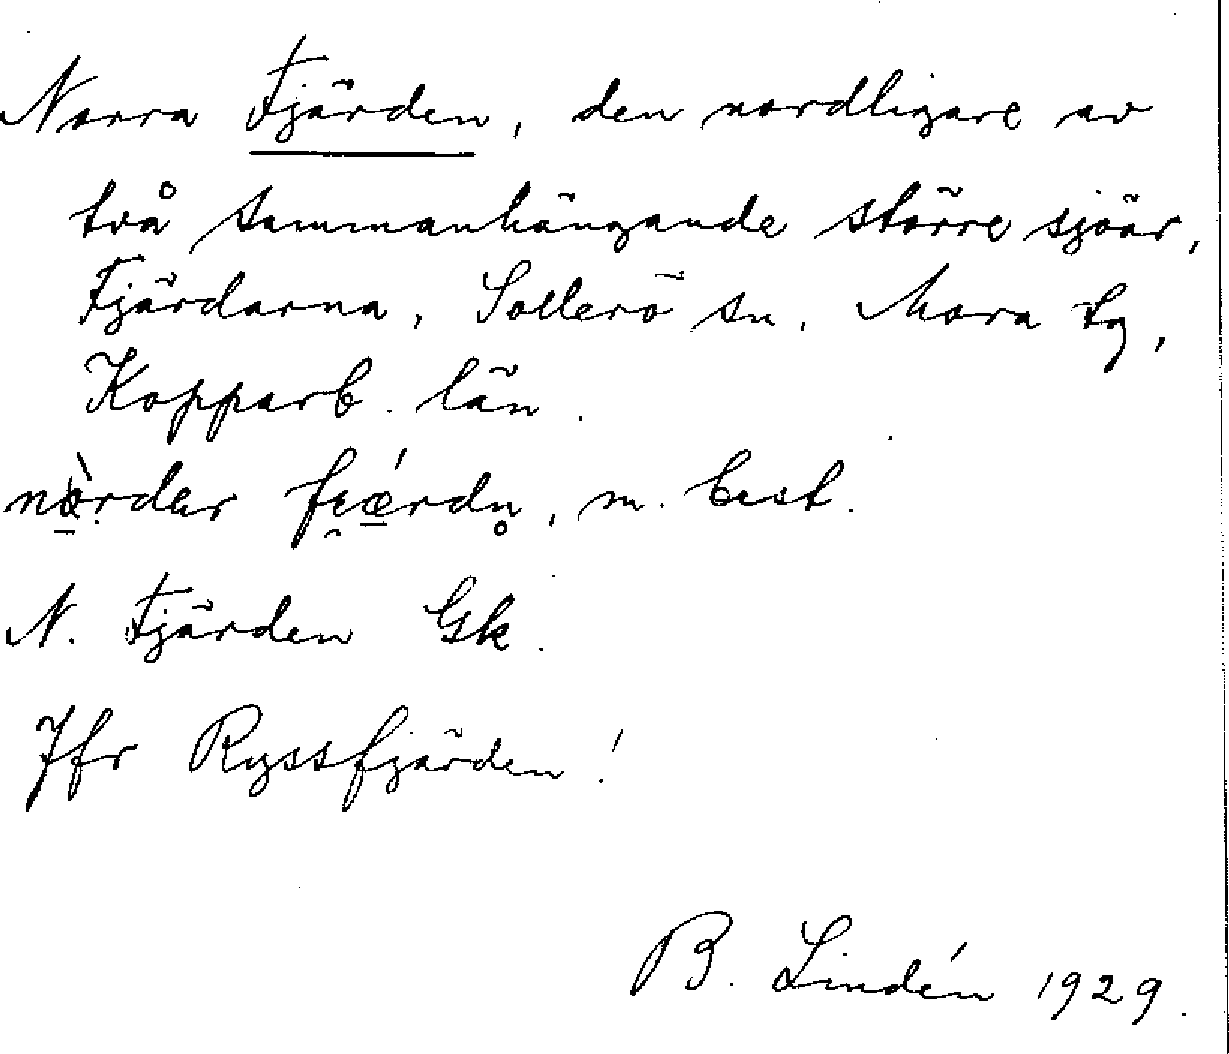 Norra Fjärden, den nordligare av
två sammanhängande större sjöar,
Fjärdarna, Sollerö sn, Mora tg,
Kopparb. län.
nævrder fi̯ǽrdn̥, m. best.
N. Fjärden Gk.
Jfr Ryssfjärden!
B. Lindén 1929.